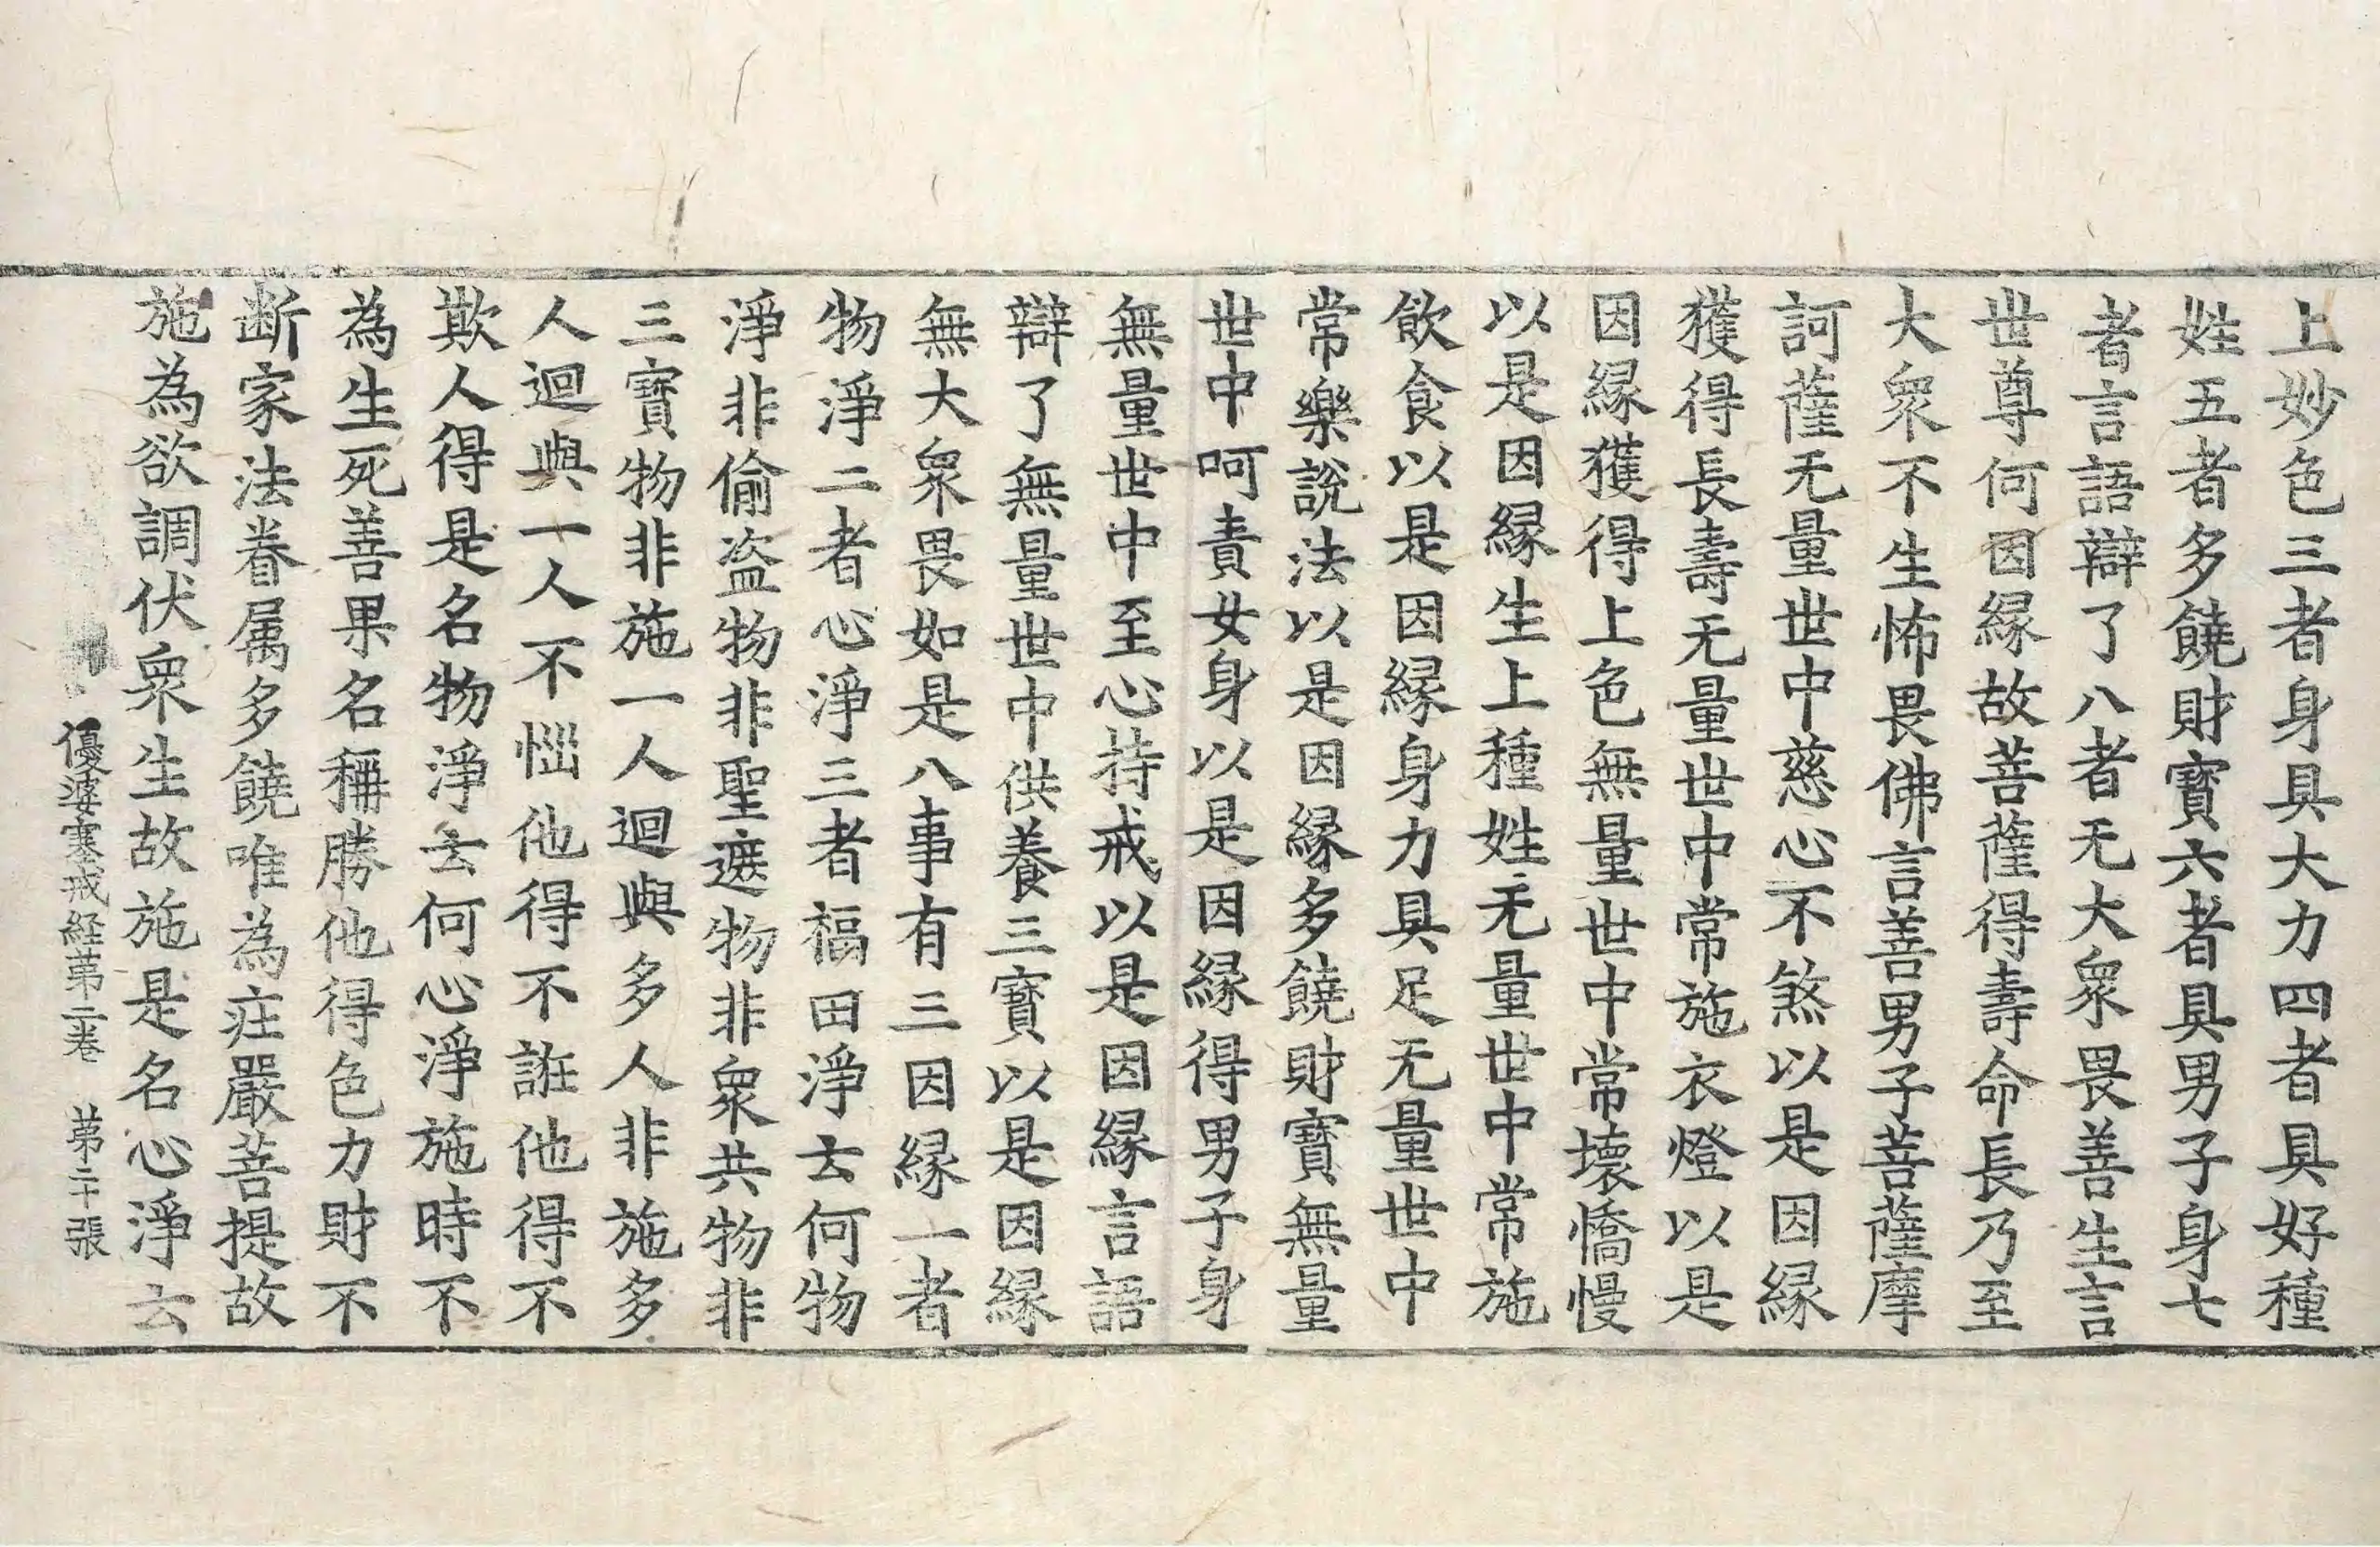 上妙色三者身具大力四者具好種
姓五者多饒財寶六者具男子身七
者言語辯了八者无大衆畏善生言
世尊何因緣故菩薩得壽命長乃至
大衆不生怖畏佛言善男子菩薩摩
訶薩无量世中慈心不煞以是因緣
獲得長壽无量世中常施衣燈以是
因緣獲得上色無量世中常壞憍慢
以是因緣生上種姓无量世中常施
飲食以是因緣身力具足无量世中
常樂說法以是因緣多饒財寶無量
世中呵責女身以是因緣得男子身
無量世中至心持戒以是因緣言語
辯了無量世中供養三寶以是因緣
無大衆畏如是八事有三因緣一者
物淨二者心淨三者福田淨云何物
淨非偷盜物非聖遮物非衆共物非
三寶物非施一人迴與多人非施多
人迴與一人不惱他得不誑他得不
欺人得是名物淨云何心淨施時不
為生死善果名稱勝他得色力財不
断家法眷属多饒唯為庄嚴菩提故
施為欲調伏衆生故施是名心淨云
優婆塞戒経苐二卷 苐二十張